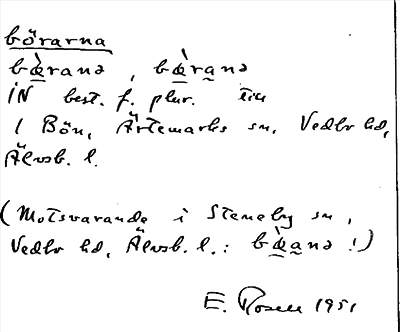 börarna
bœ̀ranə , bœ̀ranə
IN best. f. plur. till
/ Bön, Ärtemarks sn, Vedbo hd,
Älvsb. l.
(Motsvarande i Steneby sn,
Vedbo hd, Älvsb. l.: bœ̀anə !)
E. Rosell 1951